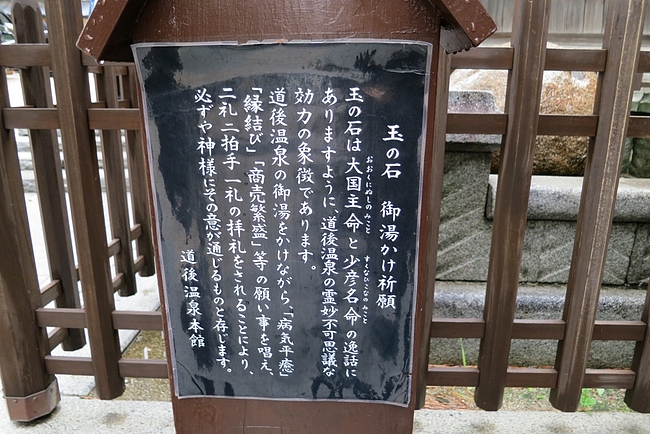 玉の石　御湯かけ祈願
玉の石は大国主命と少彦名命の逸話に
おおくにぬしのみこと
すくなひこなのみこと
ありますように、道後温泉の霊妙不可思議な
効力の象徴であります。
道後温泉の御湯をかけながら、「病気平癒」
「縁結び」「商売繁盛」等の願い事を唱え、
二礼二拍手一礼の拝礼をされることにより、
必ずや神様にその意が通じるものと存じます。
道後温泉本館